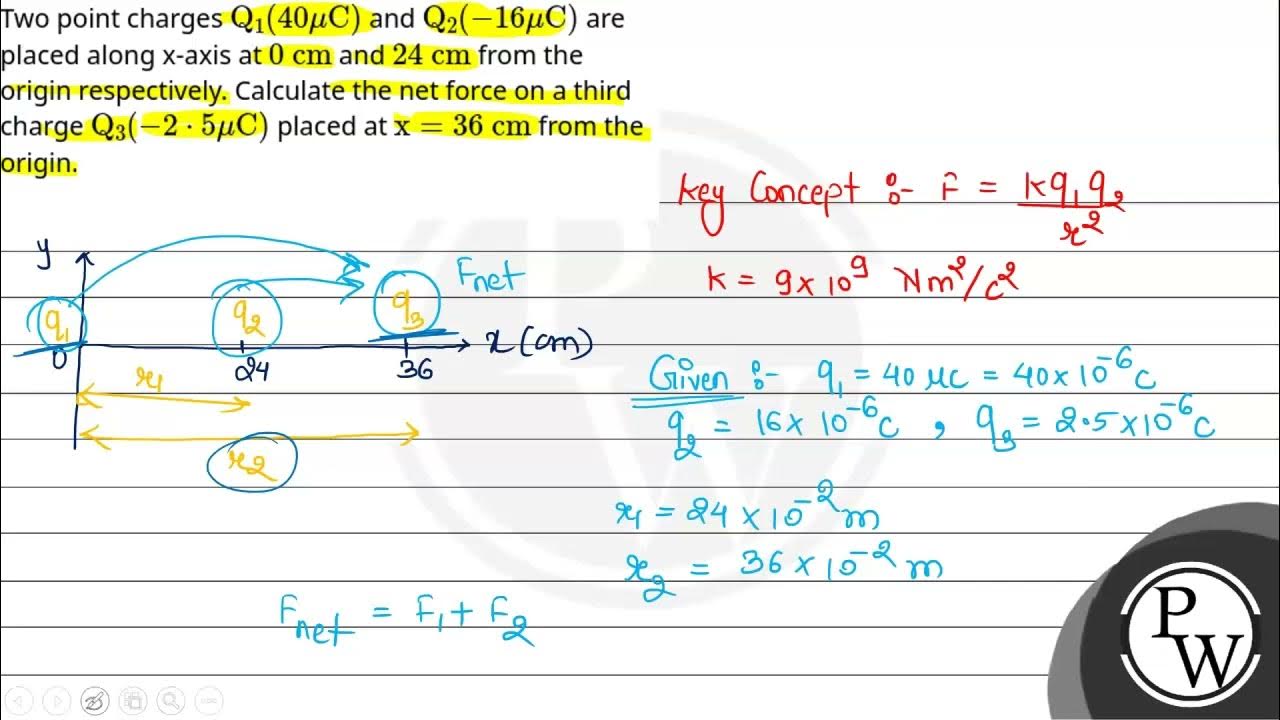 Two point charges Q₁(40μC) and Q₂(−16μC) are
placed along x-axis at 0 cm and 24 cm from the
origin respectively. Calculate the net force on a third
charge Q₃(−2·5μC) placed at x = 36 cm from the
origin.
Key Concept :- F = kq₁q₂/r²
K = 9×10⁹ Nm²/c²
y
q₁ q₂ q₃ Fnet
0 24 36 x(cm)
r₁
r₂
Given :- q₁ = 40 μc = 40×10⁻⁶c
q₂ = 16×10⁻⁶c , q₃ = 2.5×10⁻⁶c
r₁ = 24×10⁻²m
r₂ = 36×10⁻²m
Fnet = F₁+F₂
PW
PW